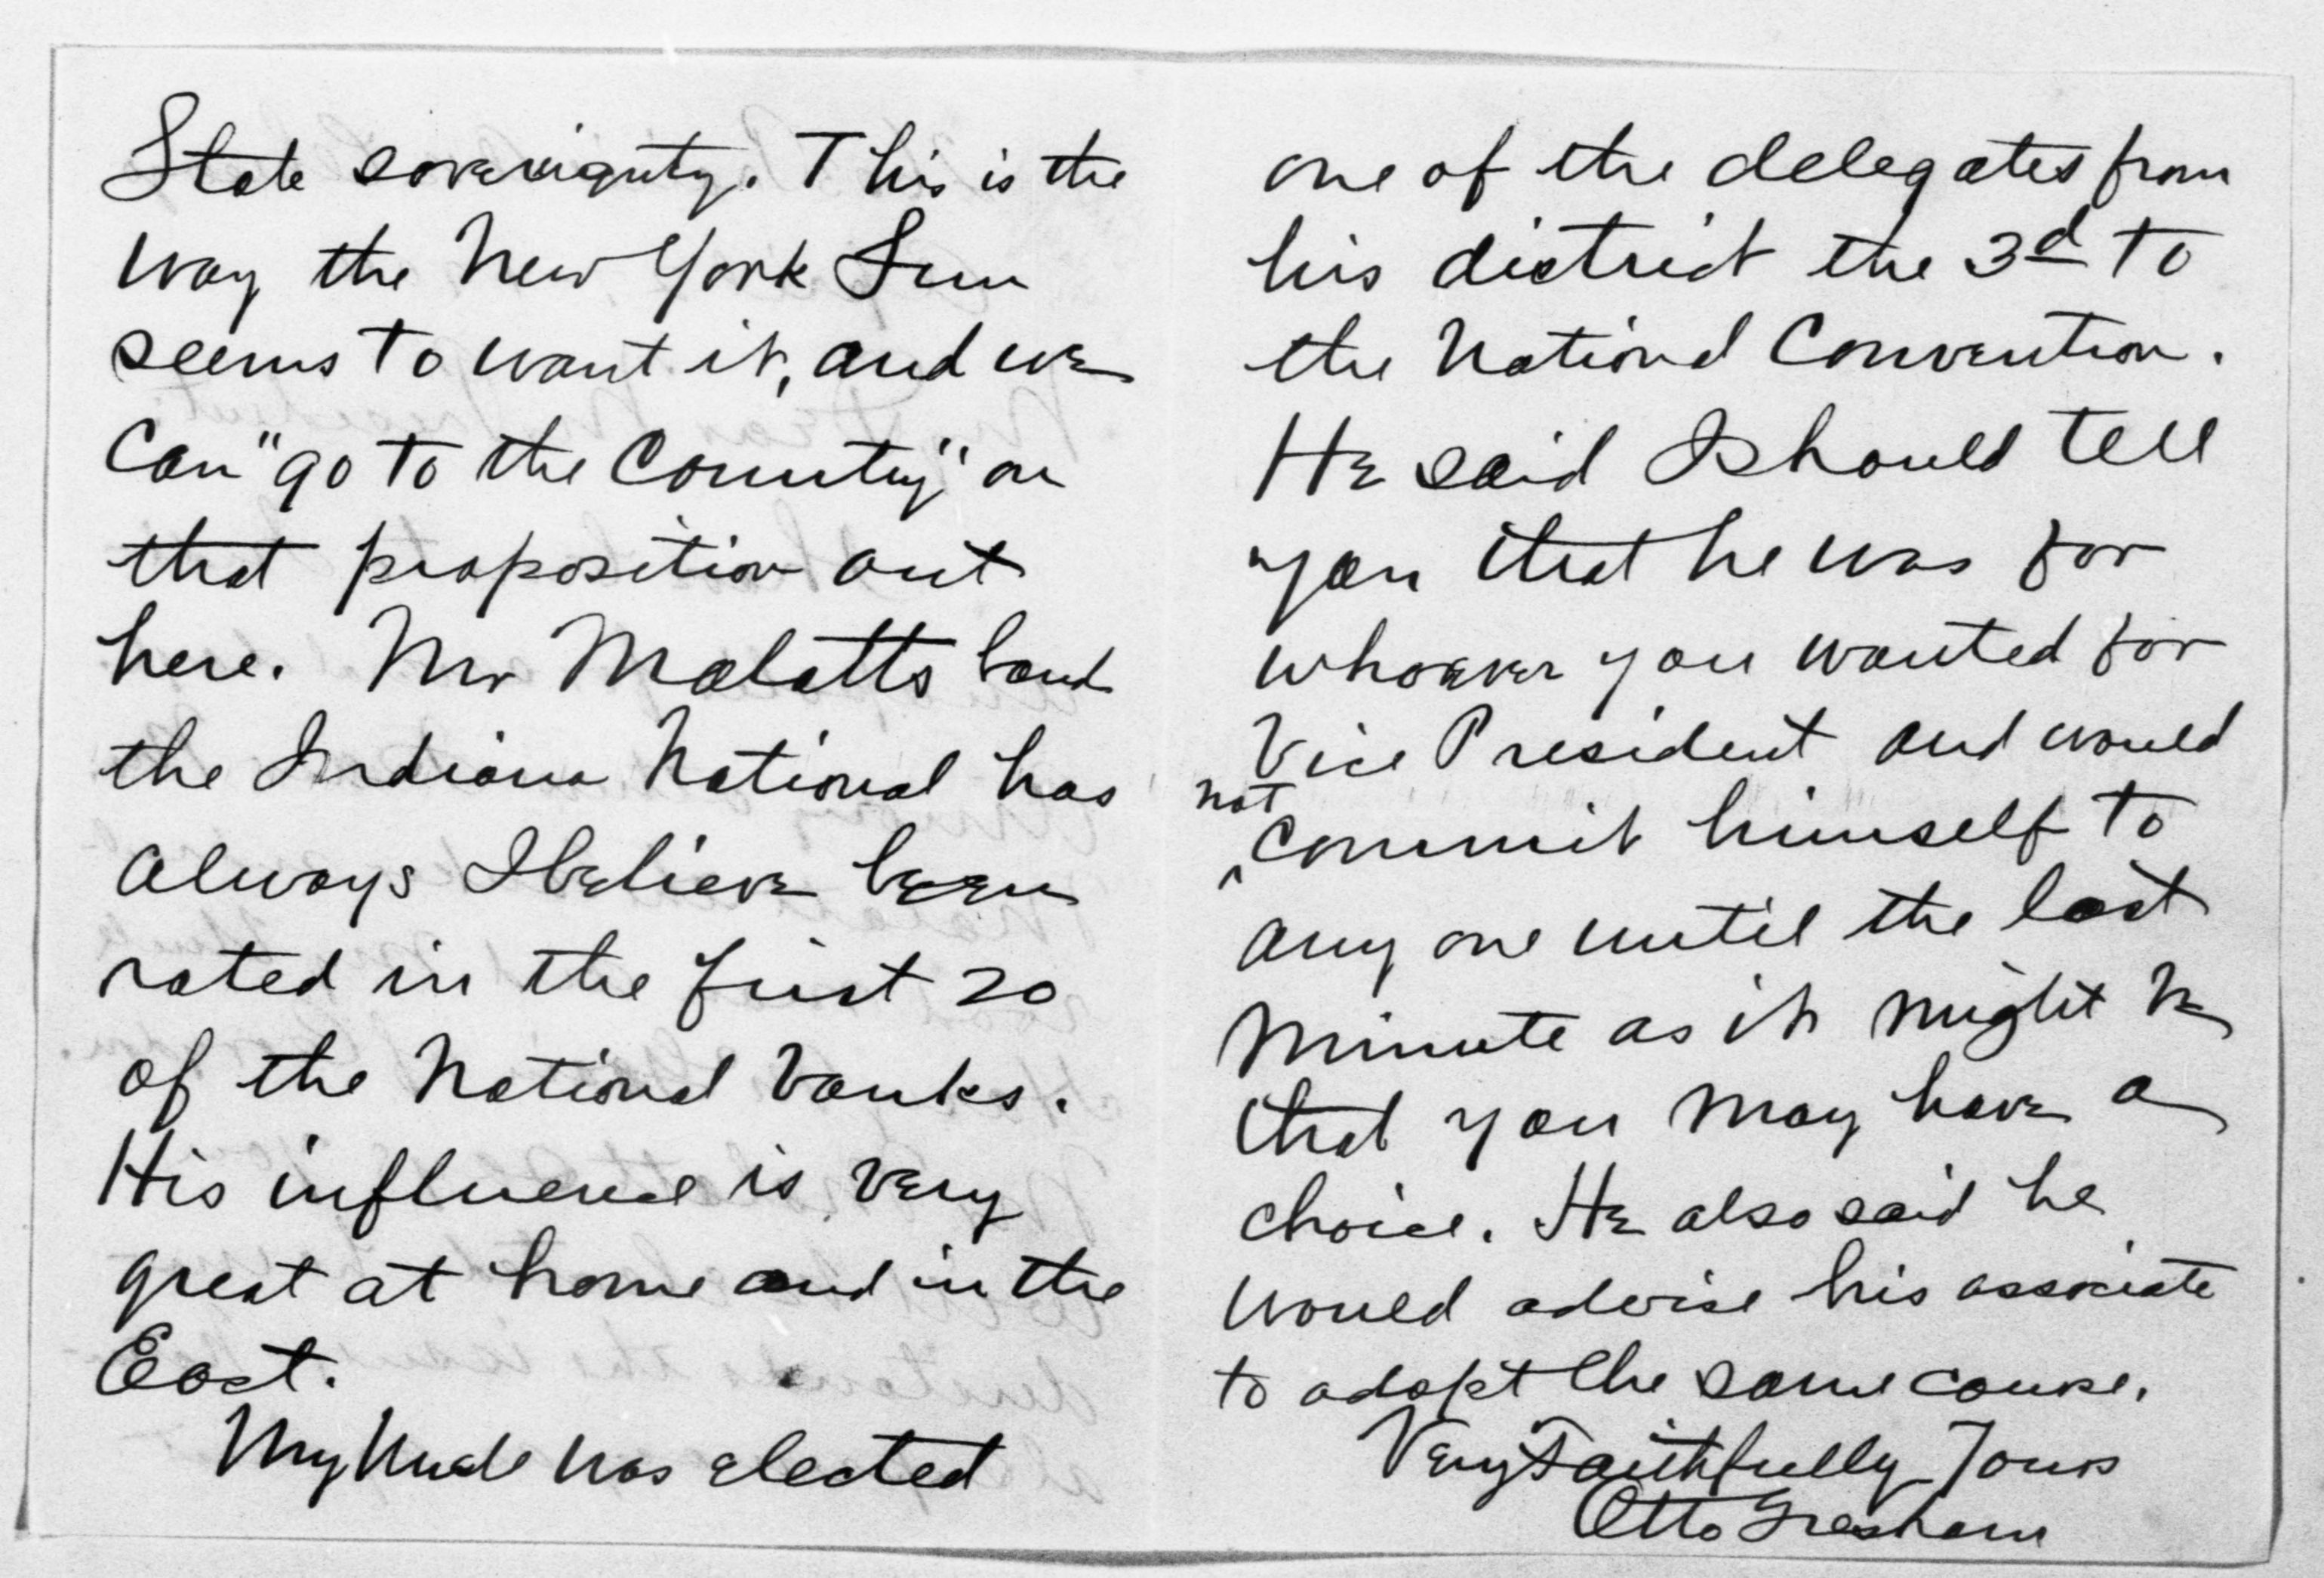 State soveriegnty. This is the
way the New York Sun
seems to want it, and we
can "go to the Country" on
that proposition out
here. Mr Malotts bank
the Indiana National has
always I believe been
rated in the first 20
of the National banks.
His influence is very
great at home and in the
East.
My Uncle was elected
one of the delegates from
his district the 3d to
the National Convention.
He said I should tell
you that he was for
whoever you wanted for
Vice President and would
not
commit himself to
any one until the last
minute as it might be
that you may have a
choice. He also said he
would advise his associate
to adopt the same course.
Very Faithfully Yours
Otto Gresham